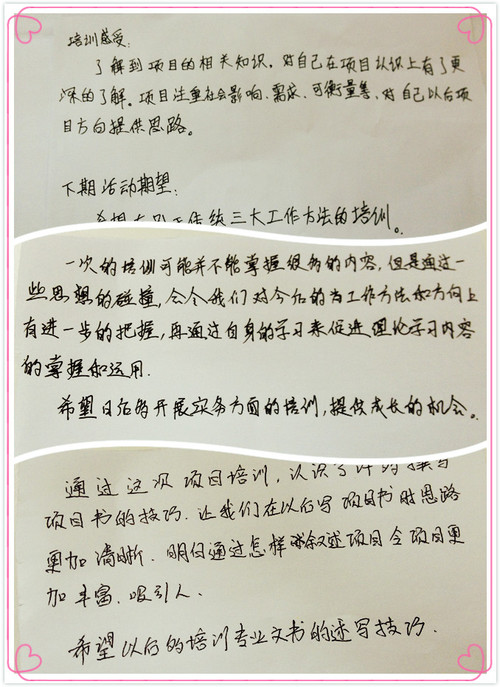 培训感受:
了解到项目的相关知识。对自己在项目认识上有了更
深的了解。项目注重社会影响、需求、可衡量等、对自己以后项
目方向提供思路。
下期活动期望:
三大工作方法的培训。
一次的培训可能并不能掌握很多的内容,但是通过一
些思想的碰撞,会令我们对今后的工作方法和方向上
有进一步的把握,再通过自身的学习来促进理论学习内容
的掌握和运用.
希望日后多开展实务方面的培训,提供成长的机会。
通过这次项目培训,认识了
项目书的技巧.让我们在以后写项目书时思路
更加清晰.明白通过怎样叙述项目令项目更
加丰富、吸引人.
希望以后的培训专业文书的述写技巧.